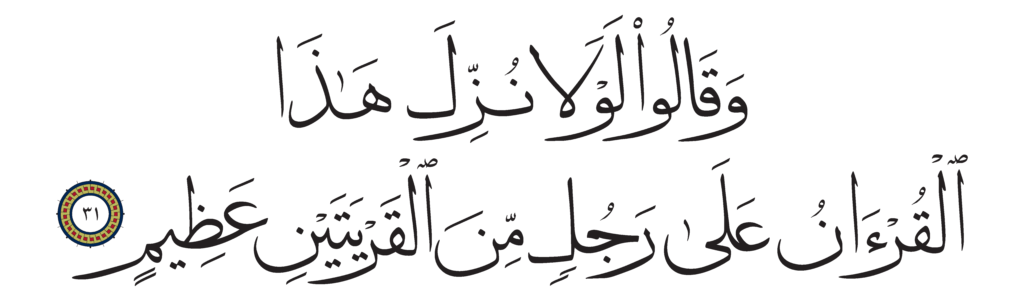 وَقَالُوا۟ لَوْلَا نُزِّلَ هَـٰذَا
ٱلْقُرْءَانُ عَلَىٰ رَجُلٍ مِّنَ ٱلْقَرْيَتَيْنِ عَظِيمٍ ٣١